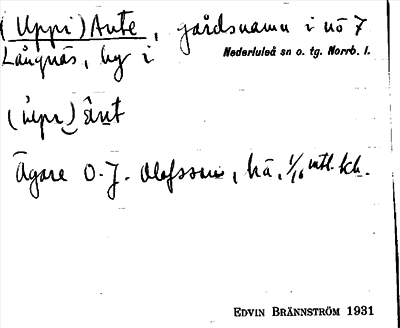 (Uppi) Ante, gårdsnamn i nö 7
Långnäs, by i Nederluleå sn o. tg. Norrb. l.
(ùpi) änt
Ägare O. J. Olofsson, hä, 1/16 mtl. kh.
EDVIN BRÄNNSTRÖM 1931